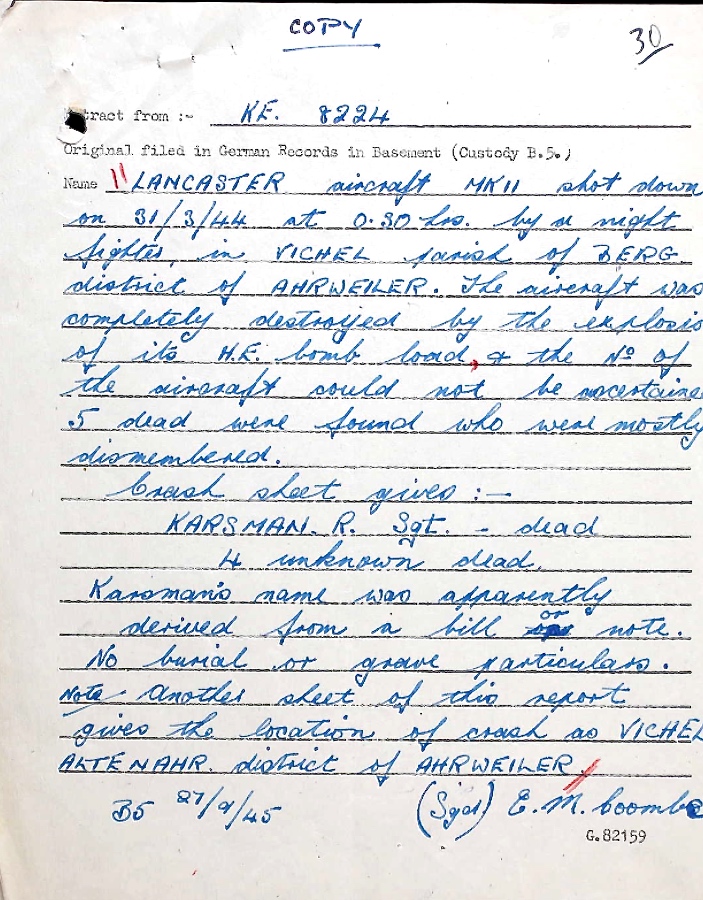 COPY
30
tract from :- KE. 8224
Original filed in German Records in Basement (Custody B.5.)
Name "LANCASTER aircraft MKII shot down
on 31/3/44 at 0.30 hrs. by a night
fighter, in VICHEL parish of BERG
district of AHRWEILER. The aircraft was
completely destroyed by the explosio
of its H.E. bomb load, & the No of
the aircraft could not be ascertaine
5 dead were found who were mostly
dismembered.
Crash sheet gives :-
KARSMAN. R. Sgt. - dead
4 unknown dead.
Karsman's name was apparently
derived from a bill or note.
No burial or grave particulars.
Note Another sheet of this report
gives the location of crash as VICHEL
ALTENAHR. district of AHRWEILER
B5 27/9/45 (Sgd) E.M. Coombe
G.82159